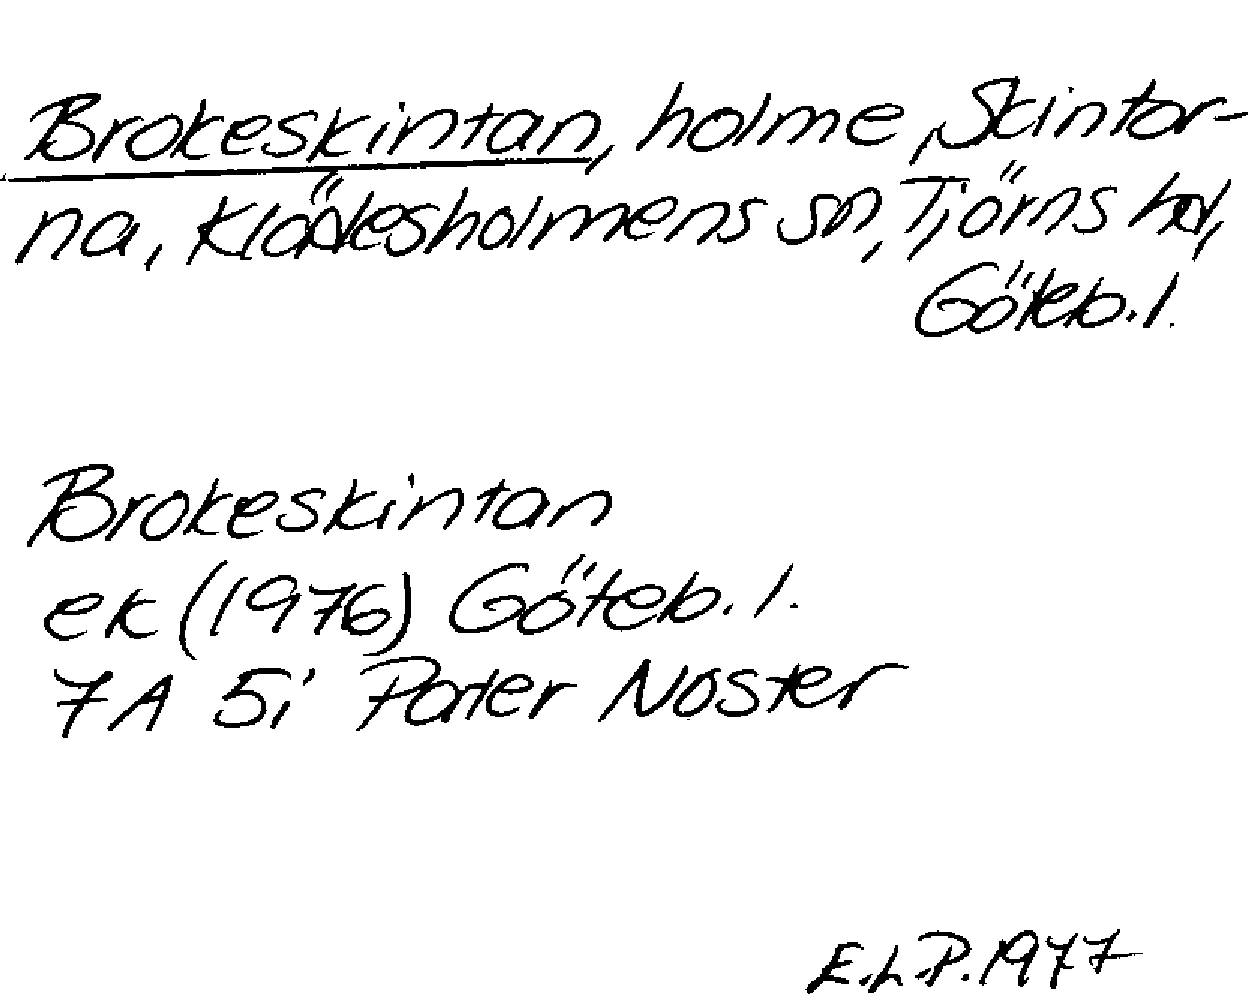 Brokeskintan, holme, Skintor-
na, Klädesholmens sn, Tjörns hd,
Göteb. l.
Brokeskintan
ek (1976) Göteb. l.
7A 5i Pater Noster
E.L.P. 1977